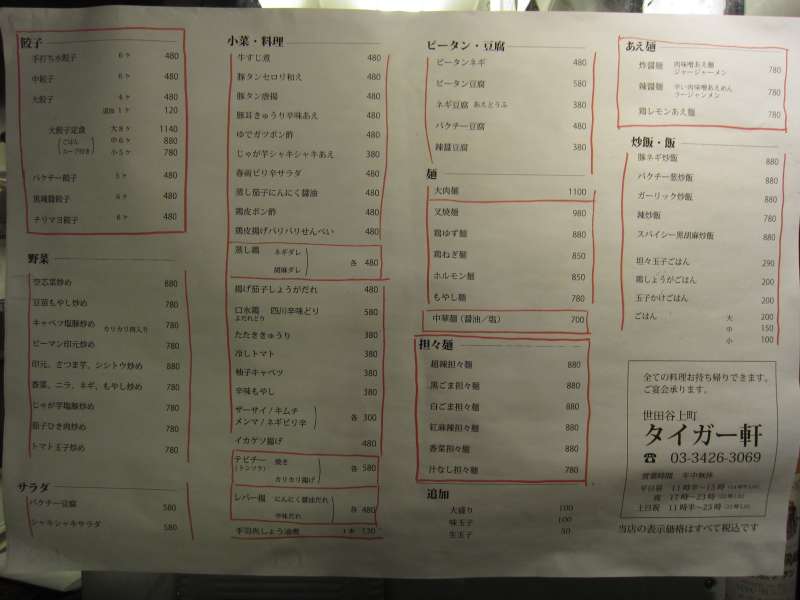 餃子
手打ち水餃子 6ヶ 480
中餃子 6ヶ 480
大餃子 4ヶ 480
追加 1ヶ 120
大餃子定食 大8ヶ 1140
ごはん 中6ヶ 880
スープ付き 小5ヶ 780
パクチー餃子 5ヶ 480
黒辣醤餃子 6ヶ 480
チリマヨ餃子 6ヶ 480
野菜
空芯菜炒め 880
豆苗もやし炒め 780
キャベツ塩豚炒め カリカリ肉入り 780
ピーマン印元炒め 780
印元、さつま芋、シシトウ炒め 880
香菜、ニラ、ネギ、もやし炒め 780
じゃが芋塩豚炒め 780
茄子ひき肉炒め 780
トマト玉子炒め 780
サラダ
パクチー豆腐 580
シャキシャキサラダ 580
小菜・料理
牛すじ煮 480
豚タンセロリ和え 480
豚タン唐揚 480
豚耳きゅうり辛味あえ 480
ゆでガツポン酢 480
じゃが芋シャキシャキあえ 380
春雨ピリ辛サラダ 480
蒸し茄子にんにく醤油 480
鶏皮ポン酢 480
鶏皮揚げパリパリせんべい 480
蒸し鶏 ネギダレ
胡麻ダレ 各 480
揚げ茄子しょうがだれ 480
口水鶏 四川辛味どり 580
よだれどり
たたききゅうり 380
冷しトマト 380
柚子キャベツ 380
辛味もやし 380
ザーサイ/キムチ
メンマ/ネギピリ辛 各 300
イカゲソ揚げ 480
テビチー 焼き
(トンソク) カリカリ揚げ 各 580
レバー揚 にんにく醤油だれ
辛味だれ 各 480
手羽肉しょう油煮 1本 150
ピータン・豆腐
ピータンネギ 480
ピータン豆腐 580
ネギ豆腐 あえとうふ 380
パクチー豆腐 480
辣醤豆腐 480
麺
大肉麺 1100
叉焼麺 980
鶏ゆず麺 880
鶏ねぎ麺 850
ホルモン麺 850
もやし麺 780
中華麺(醤油/塩) 700
担々麺
超辣担々麺 880
黒ごま担々麺 880
白ごま担々麺 880
紅麻辣担々麺 880
香菜担々麺 880
汁なし担々麺 780
追加
大盛り 100
味玉子 100
生玉子 50
あえ麺
炸醤麺 肉味噌あえ麺
ジャージャーメン 780
辣醤麺 辛い肉味噌あえめん
ラージャンメン 780
鶏レモンあえ麺 780
炒飯・飯
豚ネギ炒飯 880
パクチー葱炒飯 880
ガーリック炒飯 880
辣炒飯 780
スパイシー黒胡麻炒飯 880
担々玉子ごはん 290
鶏しょうがごはん 200
玉子かけごはん 200
ごはん 大 200
中 150
小 100
全ての料理お持ち帰りできます。
ご宴会承ります。
世田谷上町
タイガー軒
☎ 03-3426-3069
営業時間 年中無休
平日昼 11時半~15時
夜 17時~23時
土日祝 11時半~23時
当店の表示価格はすべて税込です